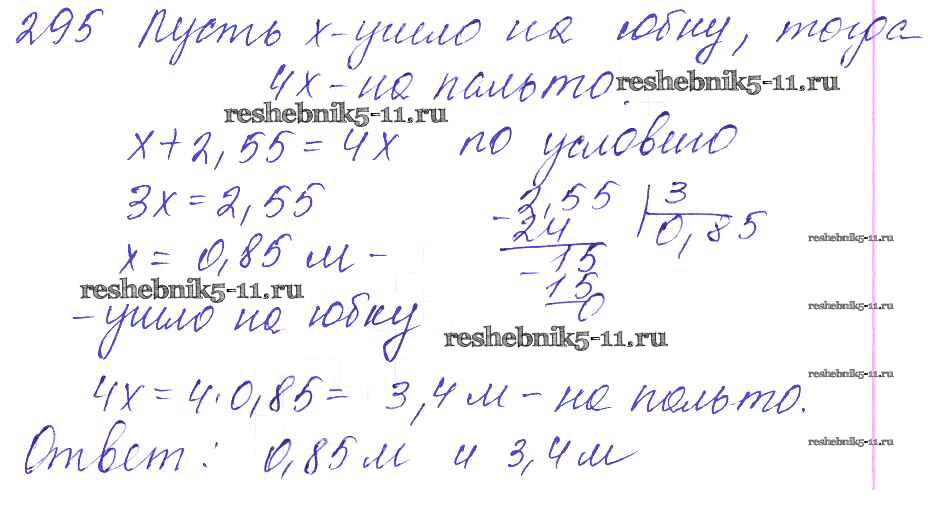 295 Пусть x - ушло на юбку, тогда
4x - на пальто. reshebnik5-11.ru
reshebnik5-11.ru
x + 2,55 = 4x по условию
3x = 2,55
x = 0,85 м -
- 2,55 | 3
24 0,85
- 15
15
0
reshebnik5-11.ru
reshebnik5-11.ru
- ушло на юбку
reshebnik5-11.ru
reshebnik5-11.ru
4x = 4·0,85 = 3,4 м - на пальто.
reshebnik5-11.ru
Ответ: 0,85 м и 3,4 м
reshebnik5-11.ru